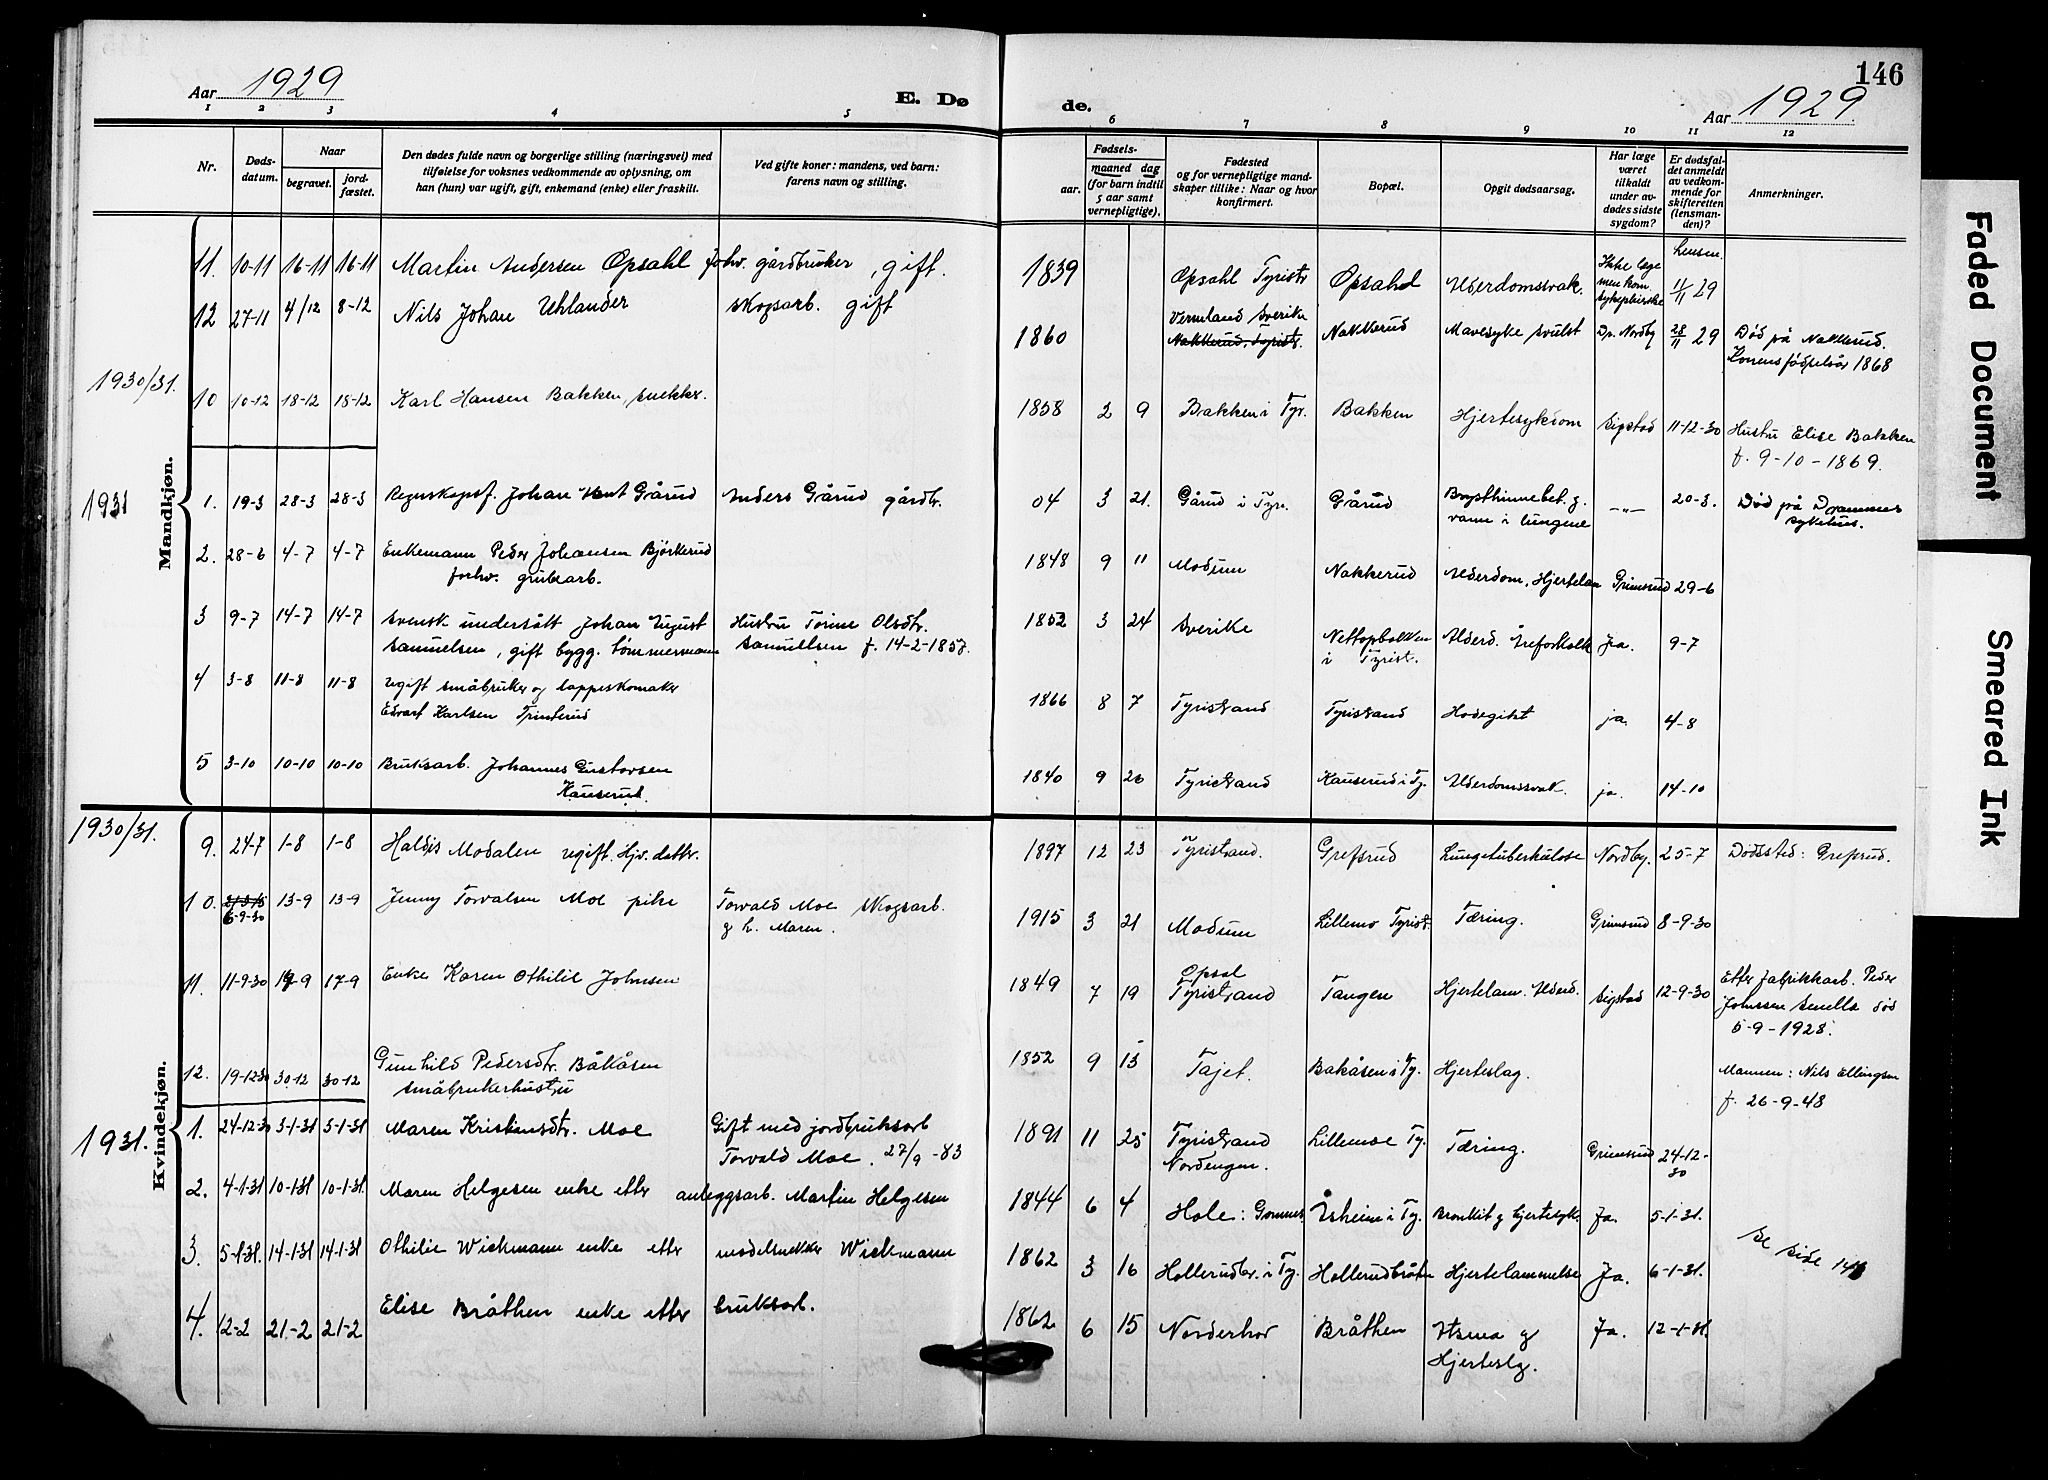 146
Aar 1929
E. Døde.
Aar 1929.
1 2 3 4 5 6 7 8 9 10 11 12
Nr.
Døds-
datum.
Naar
begravet.
jord-
fæstet.
Den dødes fulde navn og borgerlige stilling (næringsvei) med
tilføielse for voksnes vedkommende av oplysning, om
han (hun) var ugift, gift, enkemand (enke) eller fraskilt.
Ved gifte koner: mandens, ved barn:
farens navn og stilling.
Fødsels-
aar.
maaned dag
(for barn indtil
5 aar samt
vernepligtige).
Fødested
og for vernepligtige mand-
skaper tillike: Naar og hvor
konfirmert.
Bopæl.
Opgit dødsaarsag.
Har læge
været
tilkaldt
under av-
dødes sidste
sygdom?
Er dødsfal-
det anmeldt
av vedkom-
mende for
skifteretten
(lensman-
den)?
Anmerkninger.
Mandkjøn.
11. 10-11 16-11 16-11 Martin Andersen Opsahl forhv. gårdbruker, gift. 1839 Opsahl Tyristr Opsahl Alderdomssvak. Ikke læge men kom. sykepleierske Lensm. 11/11 29
12 27-11 4/12 8-12 Nils Johan Uhlander skogsarb. gift 1860 Vermland Sverike Nakkerud, Tyristr. Nakkerud Mavesyke svulst Dr. Nordby 28/11 29 Død på Nakkerud. Konens fødselsår 1868
1930/31.
10 10-12 18-12 18-12 Karl Hansen Bakken, snekker. 1858 2 9 Bakken i Tyr. Bakken Hjertesykdom Sigstad 11-12-30 Hustru Elise Bakken f. 9-10-1869.
1931
1. 19-3 28-3 28-3 Regnskapsf. Johan Gårud Anders Gårud gårdbr. 04 3 21. Gårud i Tyr. Gårud Brysthinnebet. g. vann i lungene -"- 20-3. Død på Drammens sykehus.
2. 28-6 4-7 4-7 Enkemann Peder Johansen Bjørkerud forhv. grubearb. 1848 9 11 Modum Nakkerud Alderdom, Hjertelam Grimsrud 29-6
3 9-7 14-7 14-7 Svensk undersått Johan August Samuelsen, gift bygg. tømmermann Hustru Torine Olsdtr. Samuelsen f. 14-2-1857. 1852 3 24 Sverike Nettopbakken i Tyrist. Alderd. Åreforkalk Ja. 9-7
4 3-8 11-8 11-8 ugift småbruker og lappeskomaker Edvart Karlsen Trinterud 1866 8 7 Tyristrand Tyristrand Hodegikt ja. 4-8
5 3-10 10-10 10-10 Bruksarb. Johannes Gustavsen Kauserud. 1840 9 20 Tyristrand Kauserud i Ty. Alderdomssvak. ja. 14-10
Kvindekjøn.
1930/31.
9. 24-7 1-8 1-8 Haldis Modalen ugift. Hjv. datter. 1897 12 23 Tyristrand. Grefsrud Lungetuberkulose Nordby. 25-7 Dødssted: Grefsrud.
10. 6-9-30 13-9 13-9 Jenny Torvalsen Moe pike Torvald Moe Skogsarb. g h. Maren. 1915 3 21 Modum Lillemo Tyrist. Tæring. Grimsrud 8-9-30
11. 11-9-30 17-9 17-9 Enke Karen Othilie Johnsen 1849 7 19 Opsal Tyristrand Tangen Hjertelam. Alderd. Sigstad 12-9-30 Efter fabrikkarb. Peder Johnsen Smella død 5-9-1928.
12. 19-12-30 30-12 30-12 Gunhild Pedersdtr. Båkåsen småbrukerhustru 1852 9 13 Tajet. Bakåsen i Ty. Hjerteslag. Mannen: Nils Ellingsen f. 26-9-48
1931.
1. 24-12-30 3-1-31 3-1-31 Maren Kristiansdtr. Moe Gift med jordbruksarb Torvald Moe. 27/9-83 1891 11 25 Tyristrand Nordengen. Lillemoe Ty. Tæring. Grimsrud 24-12-30
2. 4-1-31 10-1-31 10-1-31 Maren Helgesen enke etter anleggsarb. Martin Helgesen 1844 6 4 Hole: Gomnes Åsheim i Ty. Bronkit g hjertesyk. Ja. 5-1-31.
3. 5-1-31. 14-1-31 14-1-31 Othilie Wickmann enke etter modelsnekker Wickmann 1862 3 16 Hollerudbr. i Ty. Hollerudbråten Hjertelammelse Ja. 6-1-31.
4. 12-2 21-2 21-2 Elise Bråthen enke etter bruksarb. 1862 6 15 Norderhov Bråthen Astma g Hjerteslag. Ja. 12-1-31.
se side
Faded Document
Smeared Ink